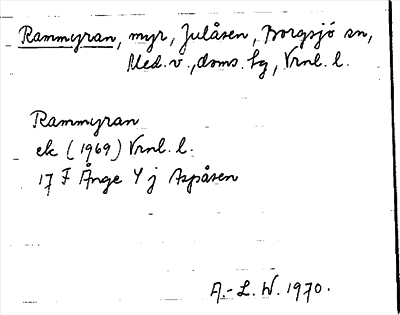 Rammyran, myr, Julåsen, Borgsjö sn,
Med. v., doms. lg, Vrnl. l.
Rammyran
ek (1969) Vrnl. l.
17 F Ånge Y j Aspåsen
A.-L. W. 1970.